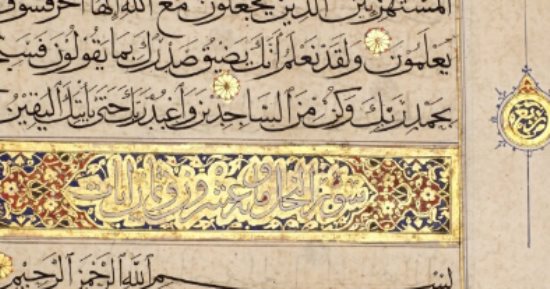 ٱلْمُسْتَهْزِئِينَ ٱلَّذِينَ يَجْعَلُونَ مَعَ ٱللَّهِ إِلَٰهًا آخَرَ فَسَوْفَ
يَعْلَمُونَ وَلَقَدْ نَعْلَمُ أَنَّكَ يَضِيقُ صَدْرُكَ بِمَا يَقُولُونَ فَسَبِّحْ
بِحَمْدِ رَبِّكَ وَكُنْ مِنَ ٱلسَّاجِدِينَ وَٱعْبُدْ رَبَّكَ حَتَّىٰ يَأْتِيَكَ ٱلْيَقِينُ
سورة النحل مائة وعشرون وثمان آيات
بِسْمِ ٱللَّهِ ٱلرَّحْمَٰنِ ٱلرَّحِيمِ